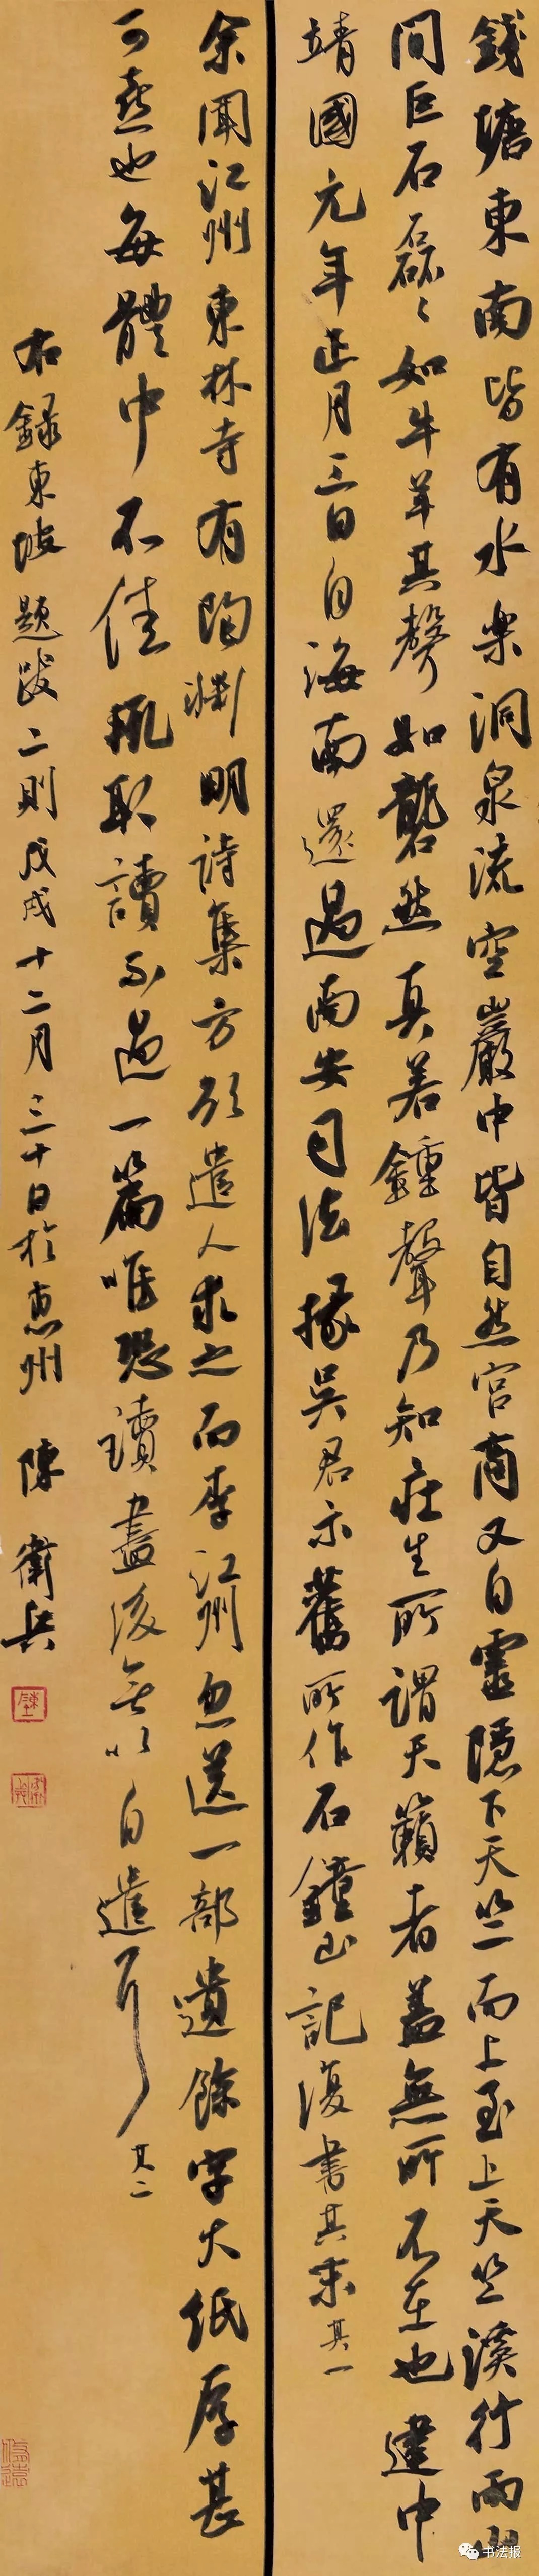 錢塘東南皆有水樂洞泉流空巖中皆自然宮商又自靈隱下天竺而上至上天竺溪行兩山
間巨石磊〻如牛羊其聲如礱然真若鍾聲乃知莊生所謂天籟者蓋無所不在也建中
靖國元年正月三日自海南還過南安司法掾吳君示舊所作石鐘山記復書其末其一
余聞江州東林寺有陶淵明詩集方欲遣人求之而李江州忽送一部遺餘字大紙厚甚
可喜也每體中不佳輒取讀不過一篇唯恐讀盡後無以自遣耳其二
右錄東坡題跋二則戊戌十二月三十日於惠州 陳衛兵
书法报